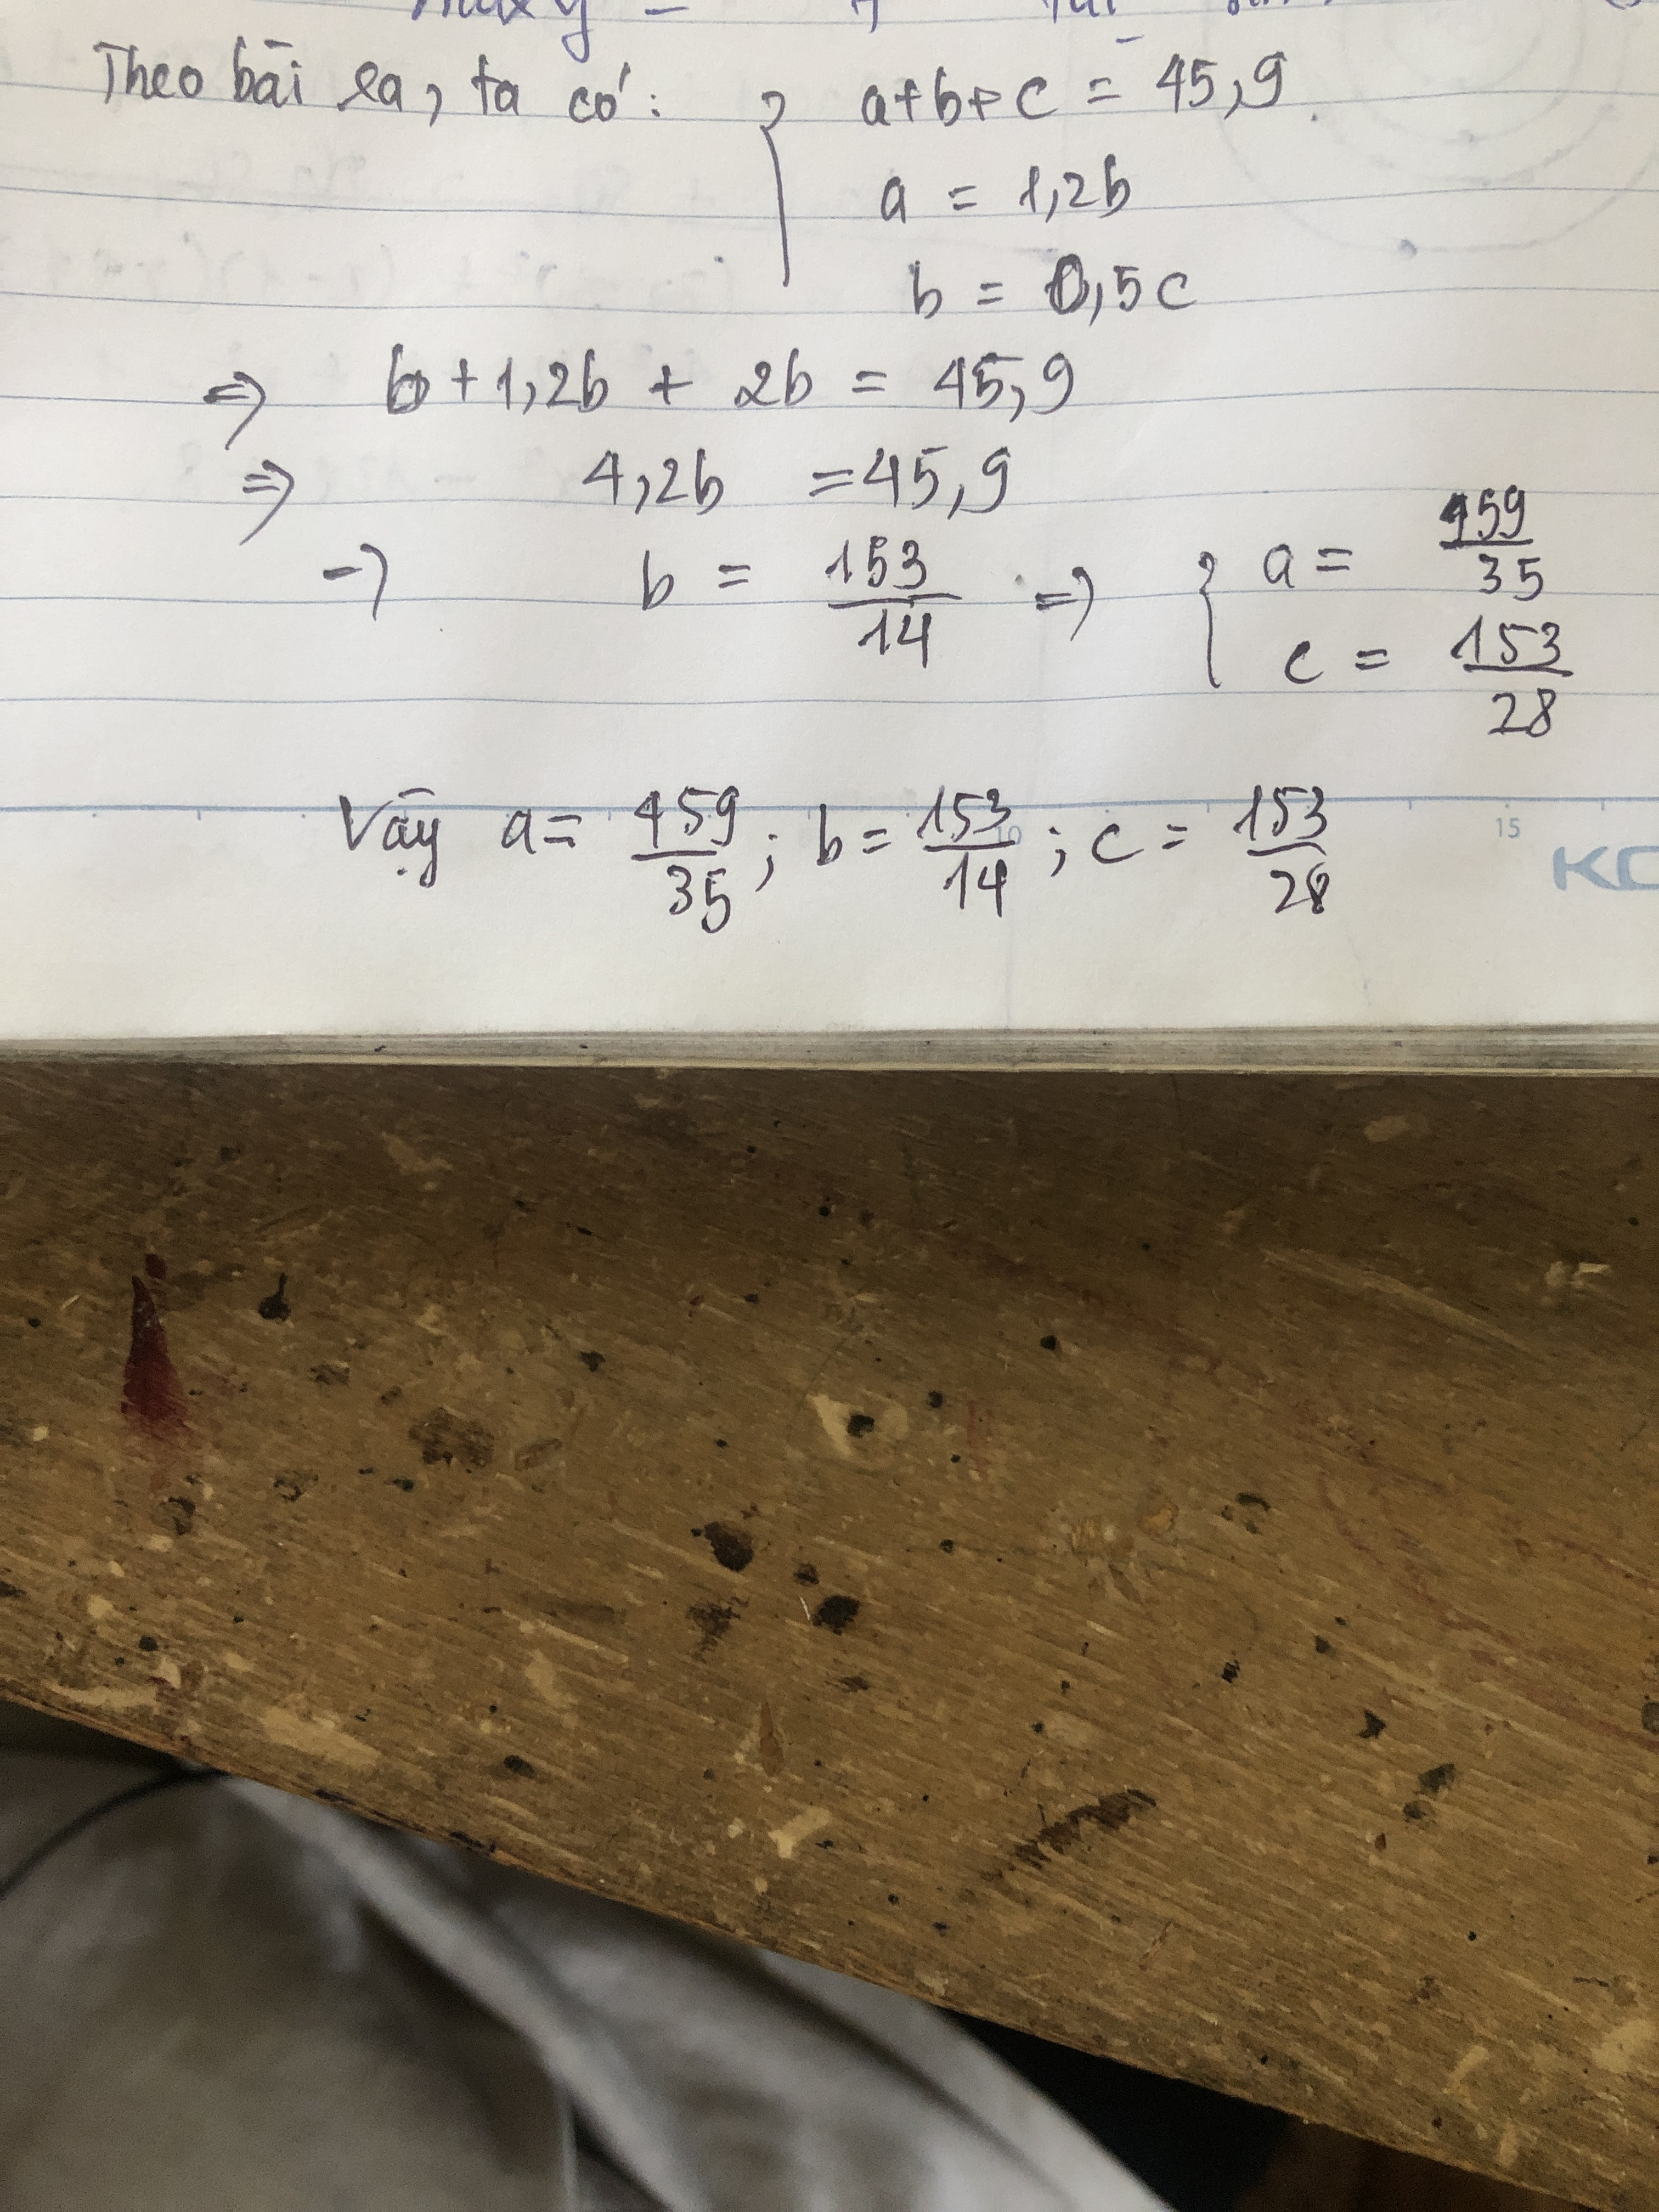 Theo bài ra, ta có: { a+b+c = 45,9
a = 1,2b
b = 0,5c
=> b + 1,2b + 2b = 45,9
=> 4,2b = 45,9
-> b = 153/14 => { a = 459/35
c = 153/28
Vậy a = 459/35; b = 153/14; c = 153/28
10 15